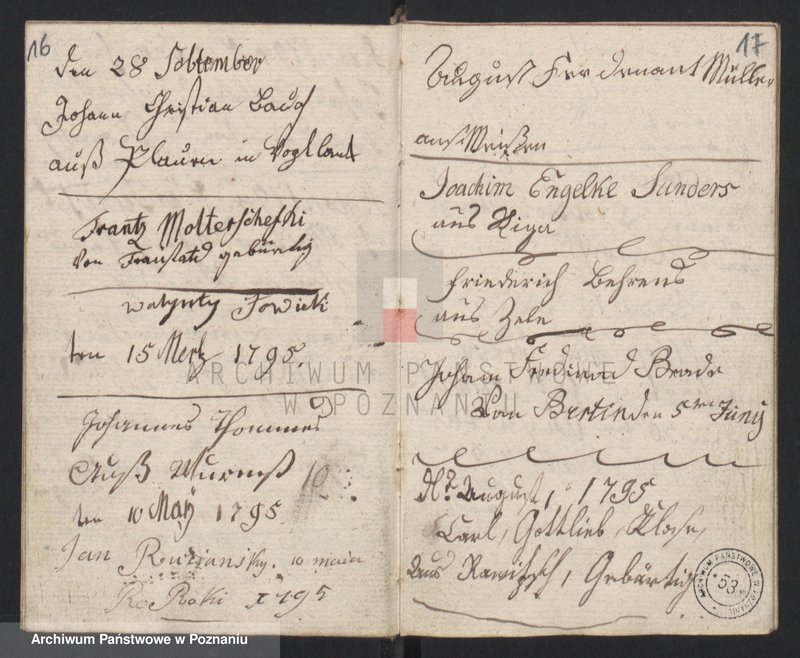 16
den 28 Sebtember
Johann Christian Bauch
auß Plauen in Vogtlant
Frantz Molterschefki
von Fraustatd gebürtig
Walynty Sowicki
ten 15 Mertz 1795.
Johannes Thommes
Auß Wurmß
ten 10 Maÿ 1795
Jan Ruziansky. 10 maia
Ro Roki 1795
17
August Ferdenant Müller
auß Meißen
Joachim Engelke Sanders
aus Riga
Friederich Behrens
aus Zele
Johann Ferdinand Brade
Von Berlin den 5ten Juny
August, 1795
Carl, Gottlieb, Klose,
Aus Rawitsch, Gebürtig
ARCHIWUM PAŃSTWOWE
W POZNANIU
ARCHIWUM PAŃSTWOWE W POZNANIU
53
Archiwum Państwowe w Poznaniu